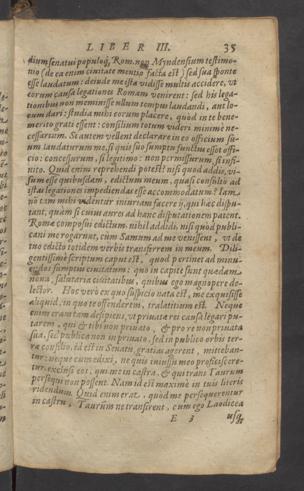 LIBER III. 35
dium senatui populoq́, Rom. non Myndensium testimo-
nio (de ea enim ciuitate mentio facta est) sed sua sponte
esse laudatum: deinde me ista vidisse multis accidere, vt
eorum causa legationes Romam venirent: sed his lega-
tionibus non meminisse vllum tempus laudandi, aut lo-
cum dari: studia mihi eorum placere, quòd in te bene-
merito grati essent: consilium totum videri minimè ne-
cessarium. Si autem vellent declarare in eo officium su-
um laudaturum me, si quis suo sumptu functus esset offi-
cio: concessurum, si legitimo: non permissurum, si infi-
nito. Quid enim reprehendi potest? nisi quod addis, vi-
sum esse quibusdam, edictum meum, quasi consultò ad
istas legationes impediendas esse accommodatum? Iam
nõ tam mihi videntur iniuriam facere ij, qui hæc dispu-
tant, quàm si cuius aures ad hanc disputationem patent.
Romæ composui edictum: nihil addidi, nisi quod publi-
cani me rogarunt, cum Samum ad me venissent, vt de
tuo edicto totidem verbis transferrem in meum. Dili-
gentissimè scriptum caput est, quod pertinet ad minu-
endos sumptus ciuitatum: quo in capite sunt quædam
noua, salutaria ciuitatibus, quibus ego magnopere de-
lector. Hoc verò ex quo suspicio nata est, me exquisisse
aliquid, in quo te offenderem, tralatitium est. Neque
enim eram tam desipiens, vt priuatæ rei causa legari pu-
tarem, qui & tibi non priuato, & pro re non priuata
sua, sed publica non in priuato, sed in publico orbis ter-
ræ consilio, id est in Senatu, gratias agerent, mittеban-
tur: neque cum edixi, ne quis iniussu meo proficiscere-
tur, exclusi eos, qui me in castra, & qui trans Taurum
persequi non possent. Nam id est maximè in tuis literis
ridendum. Quid enim erat, quod me persequerentur
in castra, Taurum ne transirent, cum ego Laodicea
E 3 usq́